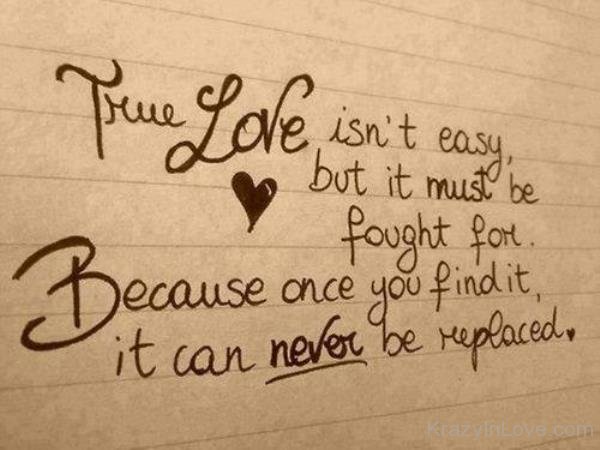 True Love isn't easy,
but it must be
fought for.
Because once you find it,
it can never be replaced.
KrazyInLove.com